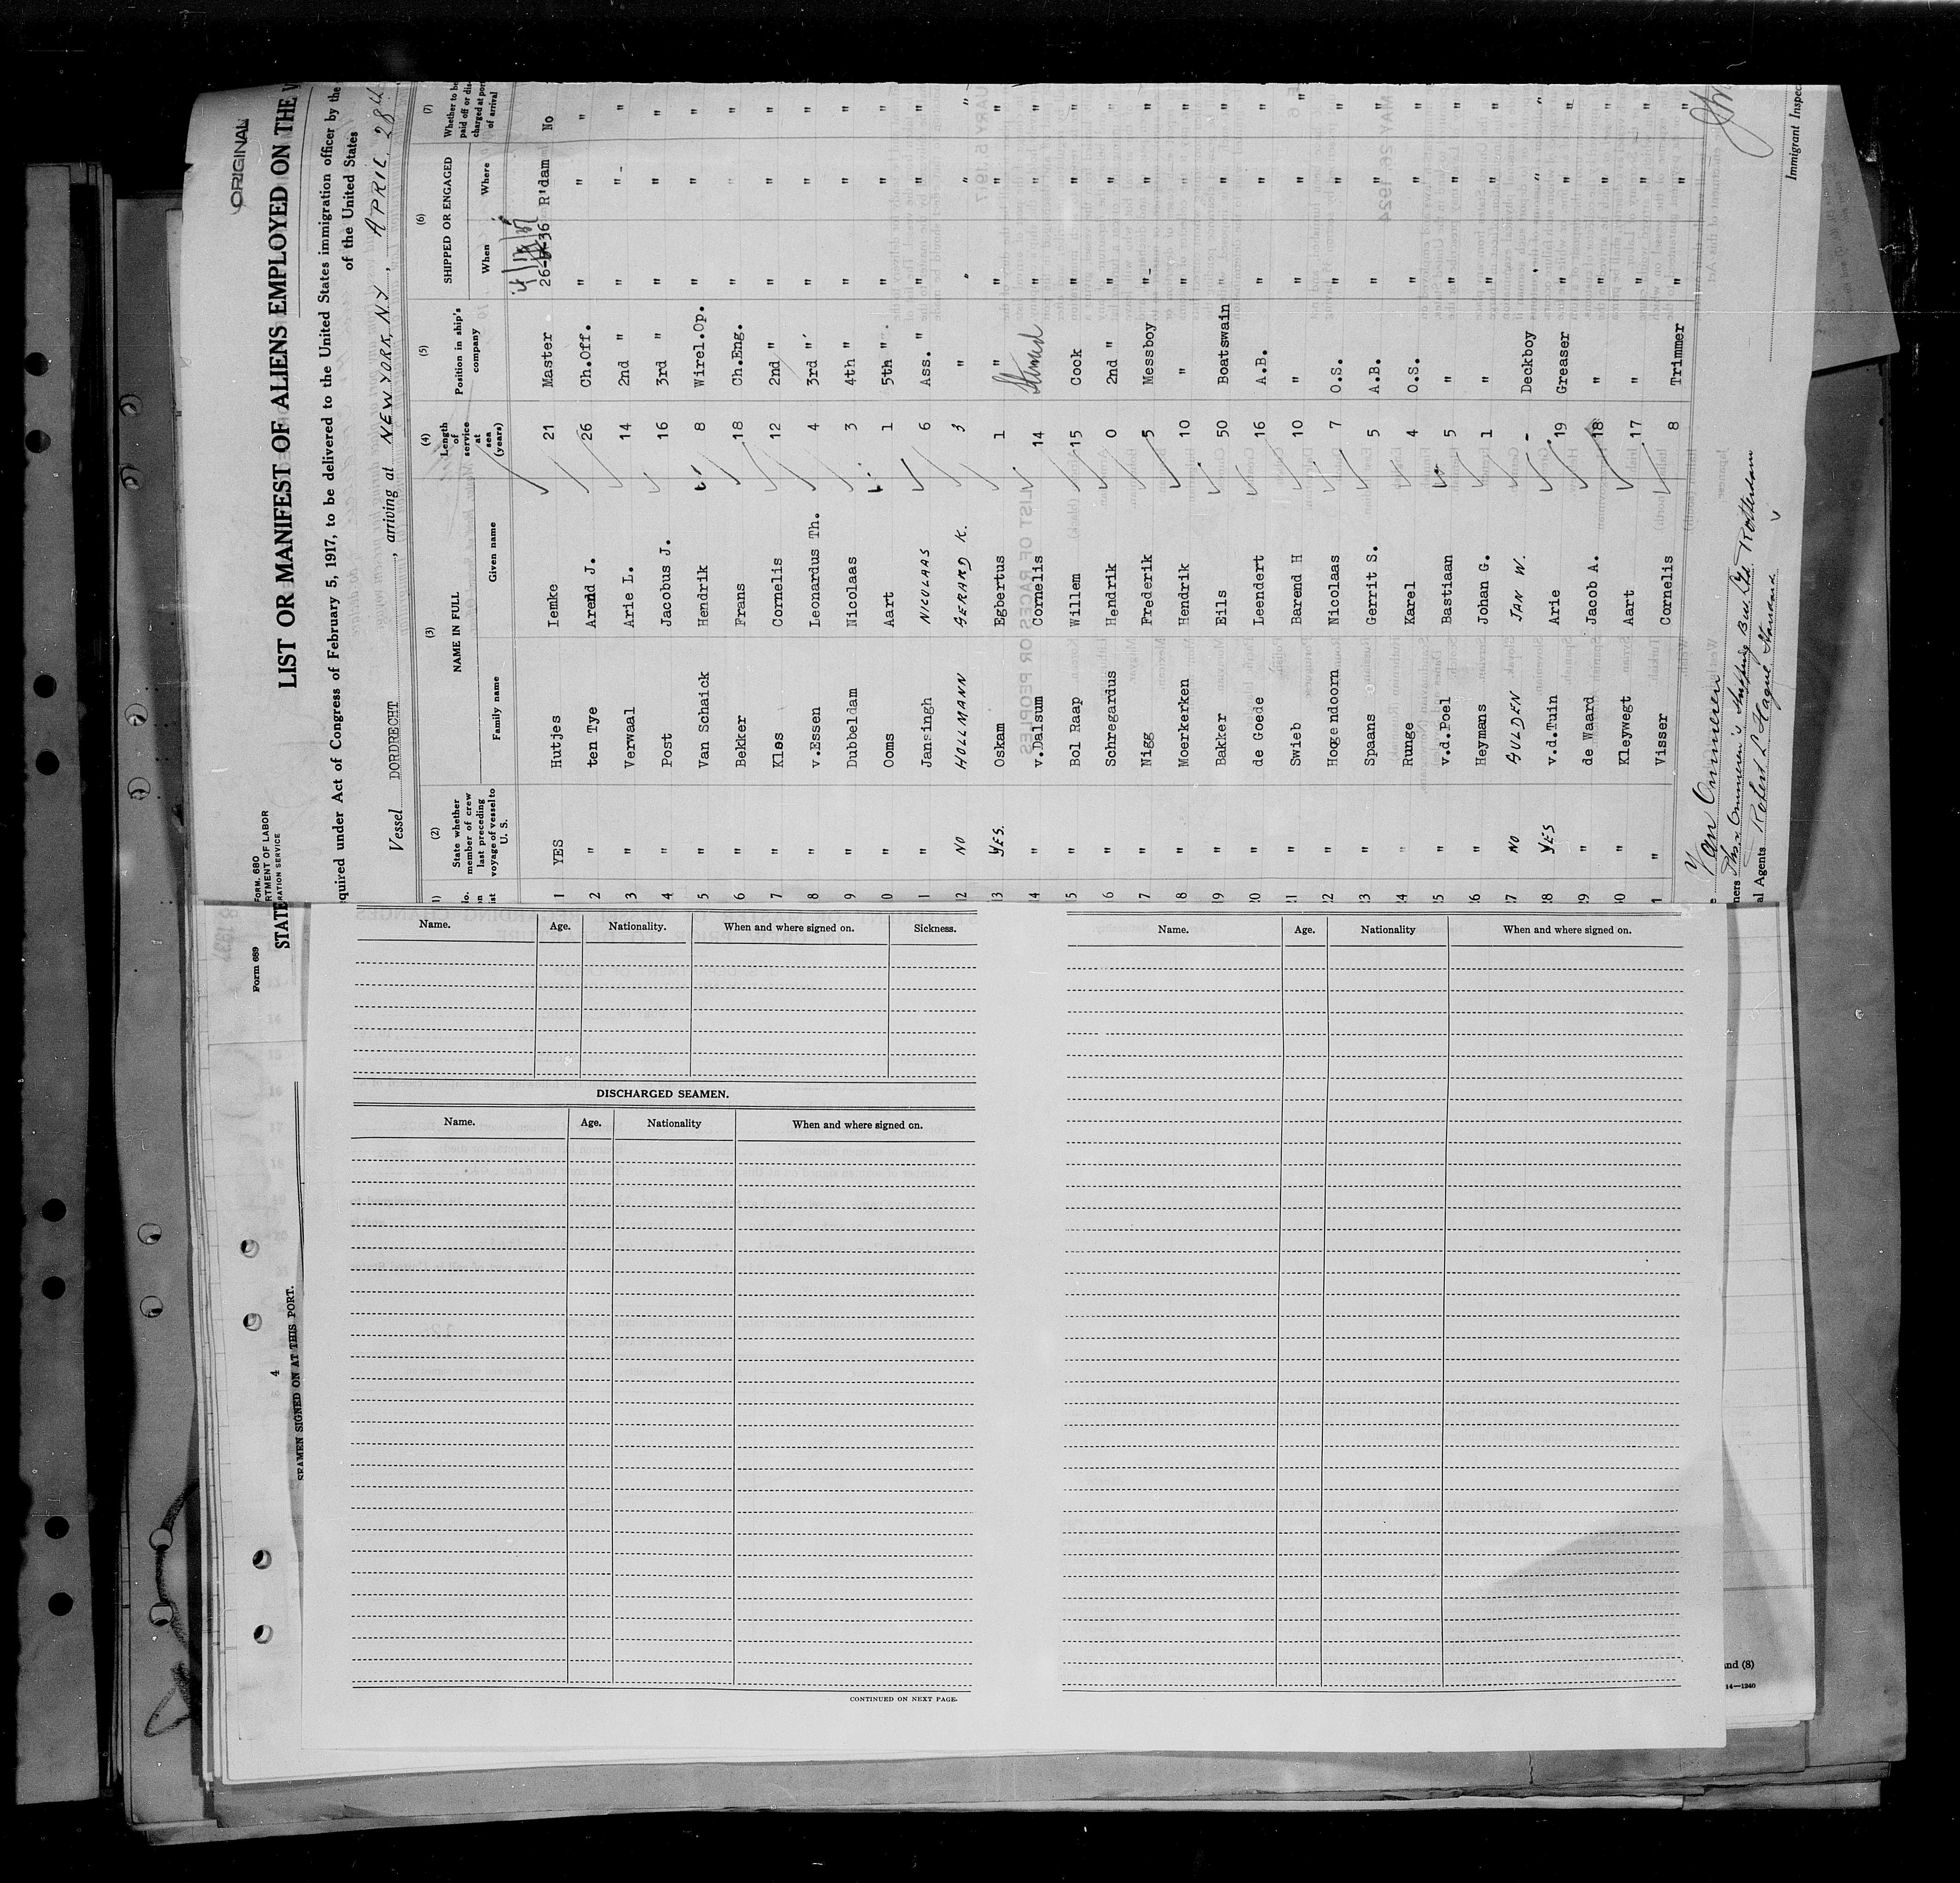 ORIGINAL
FORM. 680
LIST OR MANIFEST OF ALIENS EMPLOYED ON THE
equired under Act of Congress of February 5, 1917, to be delivered to the United States immigration officer by the
of the United States
Vessel DORDRECHT, arriving at NEW YORK, N.Y, APRIL, 28th
(2) State whether member of crew last preceding voyage of vessel to U. S.
(3) NAME IN FULL Family name Given name
(4) Length of service at sea (years)
(5) Position in ship's company
(6) SHIPPED OR ENGAGED When Where
(7) Whether to be paid off or dis- charged at port of arrival
1 YES Hutjes Iemke 21 Master R'dam No
2 " ten Tye Arend J. 26 Ch.Off. " " "
3 " Verwaal Arie L. 14 2nd " " " "
4 " Post Jacobus J. 16 3rd " " " "
5 " Van Schaick Hendrik 8 Wirel.Op. " " "
6 " Bekker Frans 18 Ch.Eng. " " "
7 " Klos Cornelis 12 2nd " " " "
8 " v.Essen Leonardus Th. 4 3rd " " " "
9 " Dubbeldam Nicolaas 3 4th " " " "
0 " Ooms Aart 1 5th " " " "
1 " Jansingh NICOLAAS 6 Ass. " " " "
2 NO HOLLMANN GERARD K. 3 " " " "
3 YES. Oskam Egbertus 1 " " " "
4 " v.Dalsum Cornelis 14 " " "
5 " Bol Raap Willem 15 Cook " " "
6 " Schregardus Hendrik 0 2nd " " " "
7 " Nigg Frederik 5 Messboy " " "
8 " Moerkerken Hendrik 10 " " " "
19 " Bakker Eils 50 Boatswain " " "
20 " de Goede Leendert 16 A.B. " " "
21 " Swieb Barend H 10 " " " "
22 " Hoogendoorn Nicolaas 7 O.S. " " "
23 " Spaans Gerrit S. 5 A.B. " " "
24 " Runge Karel 4 O.S. " " "
25 " v.d.Poel Bastiaan 5 " " " "
26 " Heymans Johan G. 1 " " " "
27 NO GULDEN JAN W. - Deckboy " " "
28 YES v.d.Tuin Arie 19 Greaser " " "
29 " de Waard Jacob A. 18 " " " "
30 " Kleywegt Aart 17 " " " "
1 " Visser Cornelis 8 Trimmer " " "
Van Ommeren
ners Phs. v. Ommeren's Shipping Bus. Ltd. Rotterdam
al Agents Robert L Hague
Immigrant Inspec
Form 689
4
SEAMEN SIGNED ON AT THIS PORT.
Name. Age. Nationality. When and where signed on. Sickness.
DISCHARGED SEAMEN.
Name. Age. Nationality When and where signed on.
CONTINUED ON NEXT PAGE.
Name. Age. Nationality When and where signed on.
nd (8)
14—1240